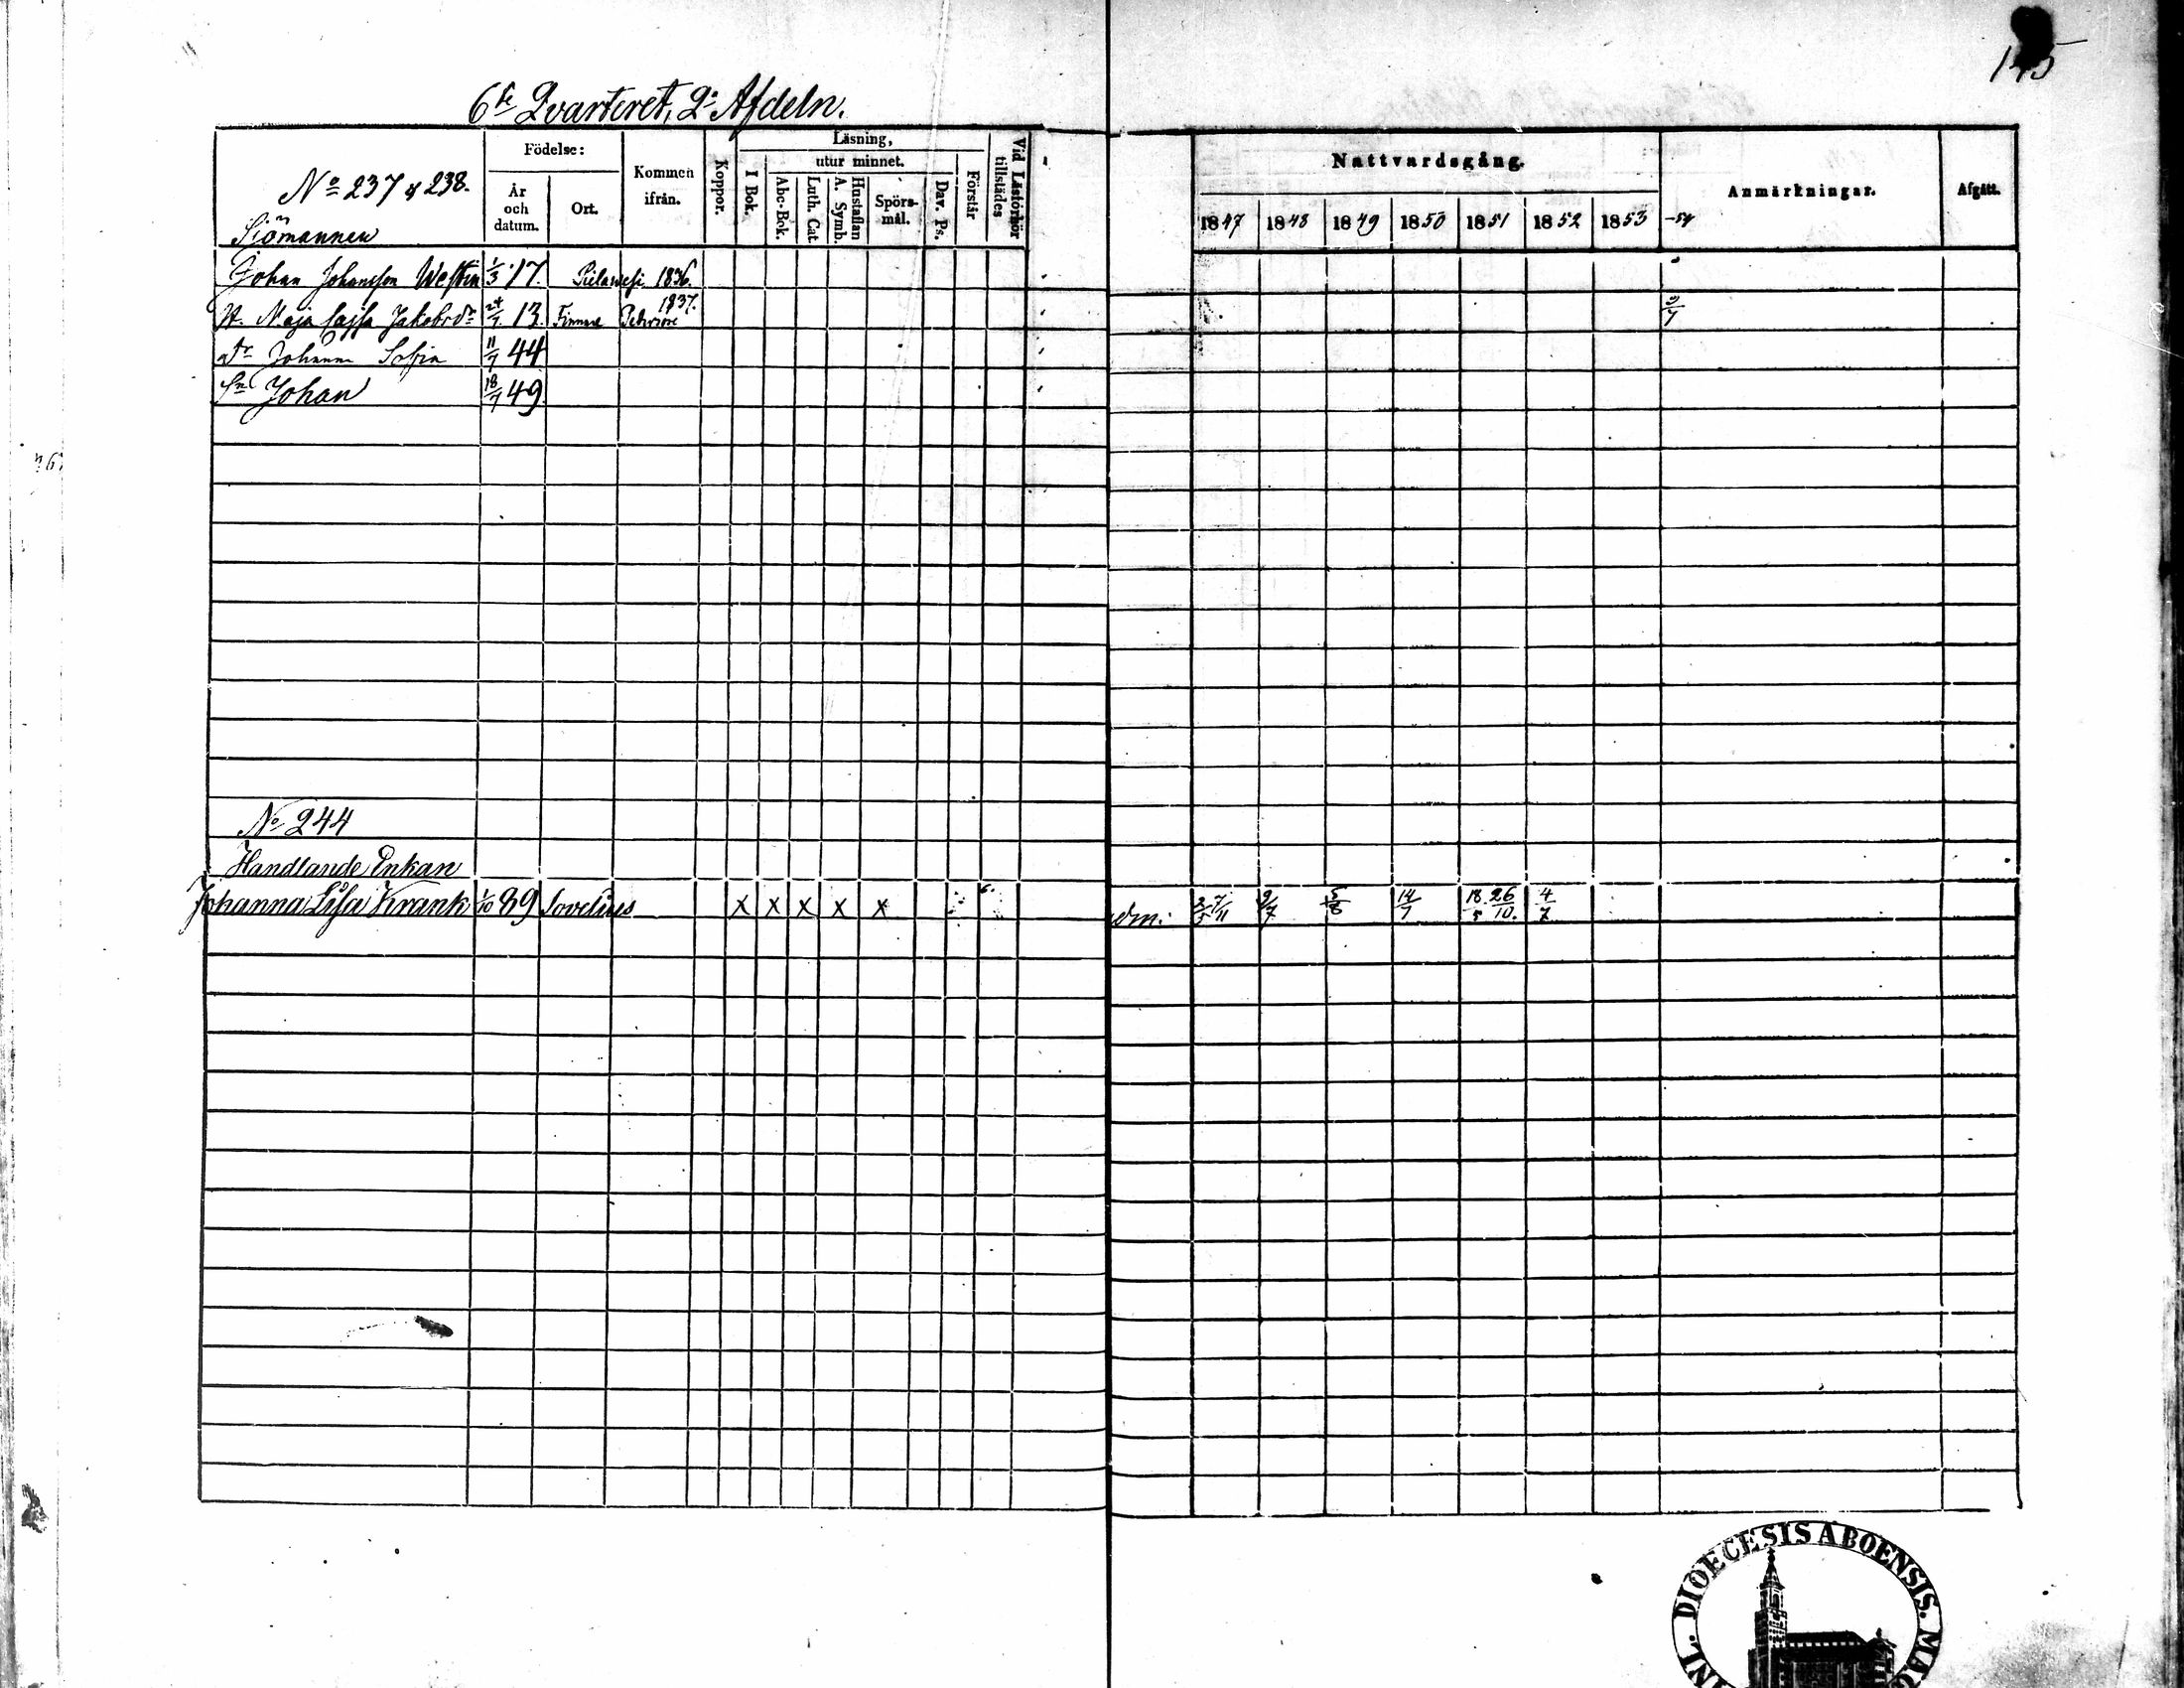 145
6te Qvarteret, 2a Afdeln.
No 237 & 238.
Födelse:
År och datum.
Ort.
Kommen ifrån.
Koppor.
Läsning,
I Bok.
utur minnet.
Abc-Bok.
Luth. Cat.
Hustaflan A. Symb.
Spörsmål.
Dav. Ps.
Förstår
Vid Läsförhör tillstädes
Nattvardsgång.
1847 1848 1849 1850 1851 1852 1853 -54
Anmärkningar.
Afgått.
Sjömannen
Johan Johansson Westin 1/3 17. Pielavesi 1836.
H. Maja Cajsa Jakobsdr 24/7 13. Pedersöre 1837.
dr Johanna Sofia 11/7 44
Sn Johan 18/7 49
No 244
Handlande Enkan
Johanna Lisa Krank 1/10 89 Sovelius x x x x x adm: 2/5 7/11 9/7 5/8 14/7 18/5 26/10. 4/7
FINL. DIOECESIS ABOENSIS. MAG